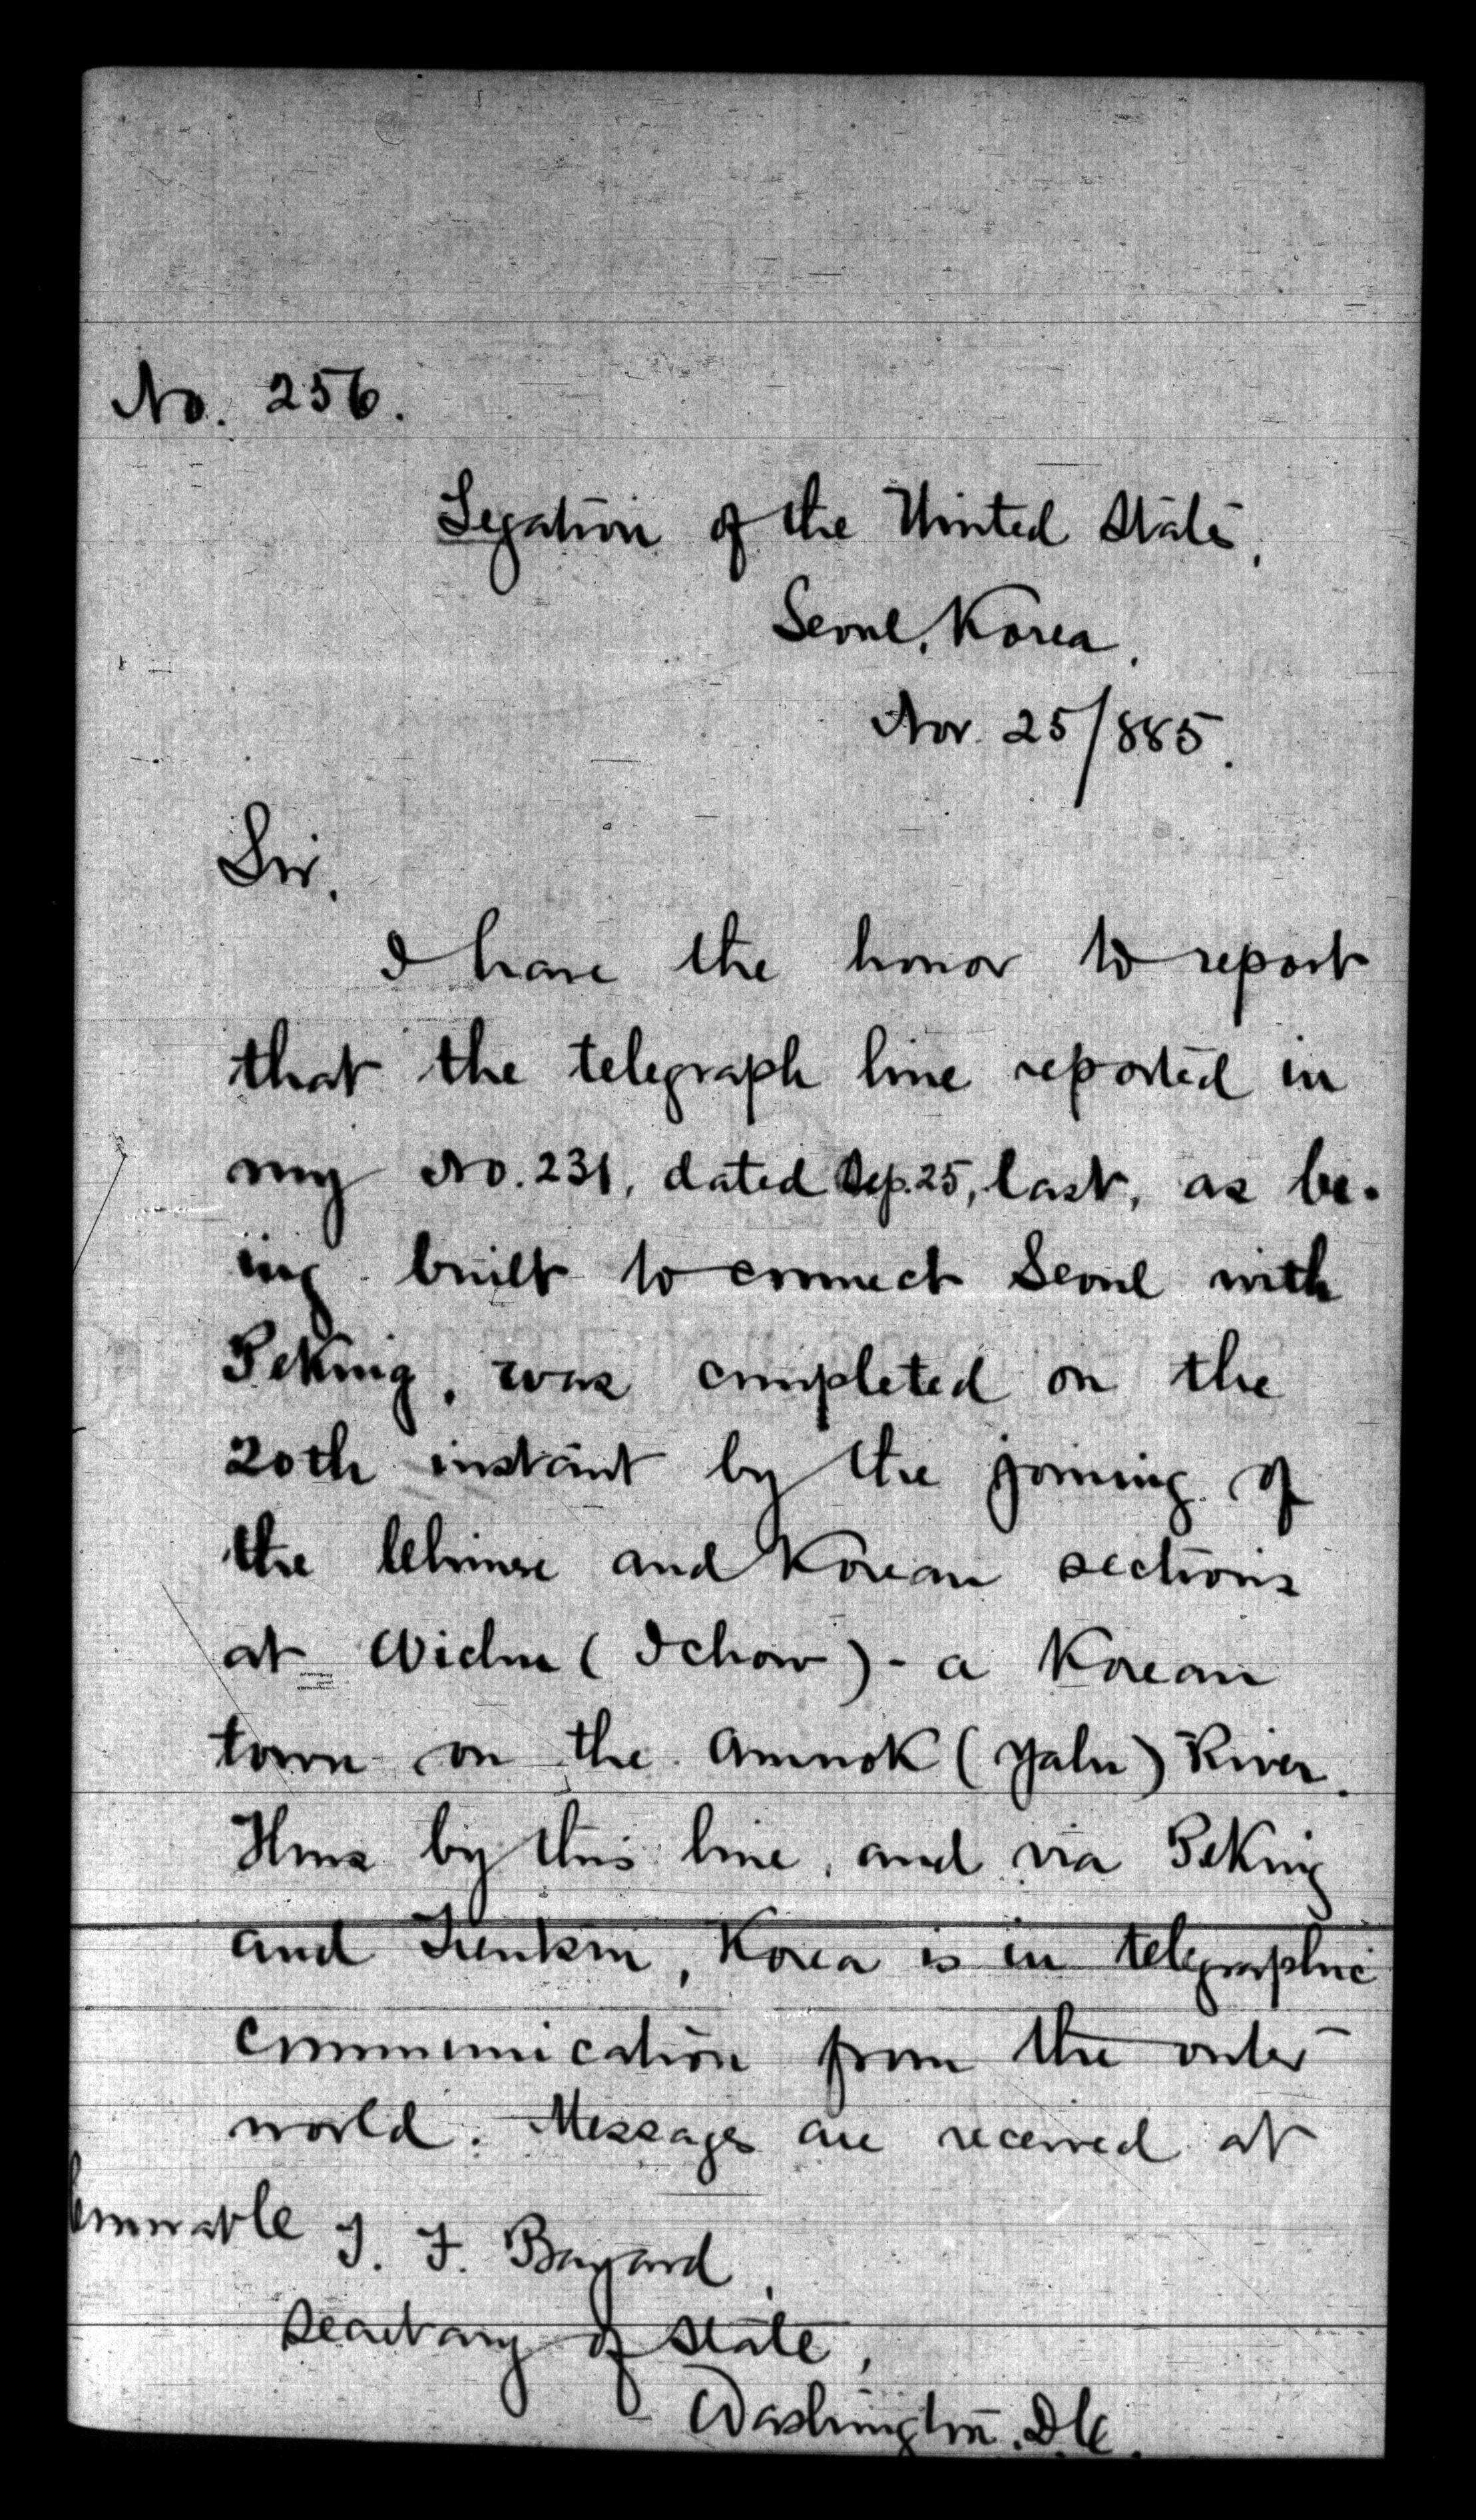 No. 256.
Legation of the United States,
Seoul, Korea.
Nov. 25/885.
Sir,
I have the honor to report
that the telegraph line reported in
my No. 231, dated Sep. 25, last, as be-
ing built to connect Seoul with
Peking, was completed on the
20th instant by the joining of
the Chinese and Korean sections
at Wichu (Ichow) - a Korean
town on the Amnok (Yalu) River.
Thus by this line, and via Peking
and Tienksin, Korea is in telegraphic
communication from the outer
world. Messages are received at
Honorable T. F. Bayard,
Secretary of State,
Washington, D.C.